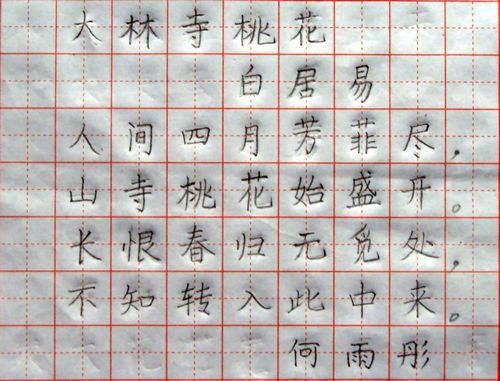 大林寺桃花
白居易
人间四月芳菲尽，
山寺桃花始盛开。
长恨春归无觅处，
不知转入此中来。
何雨彤